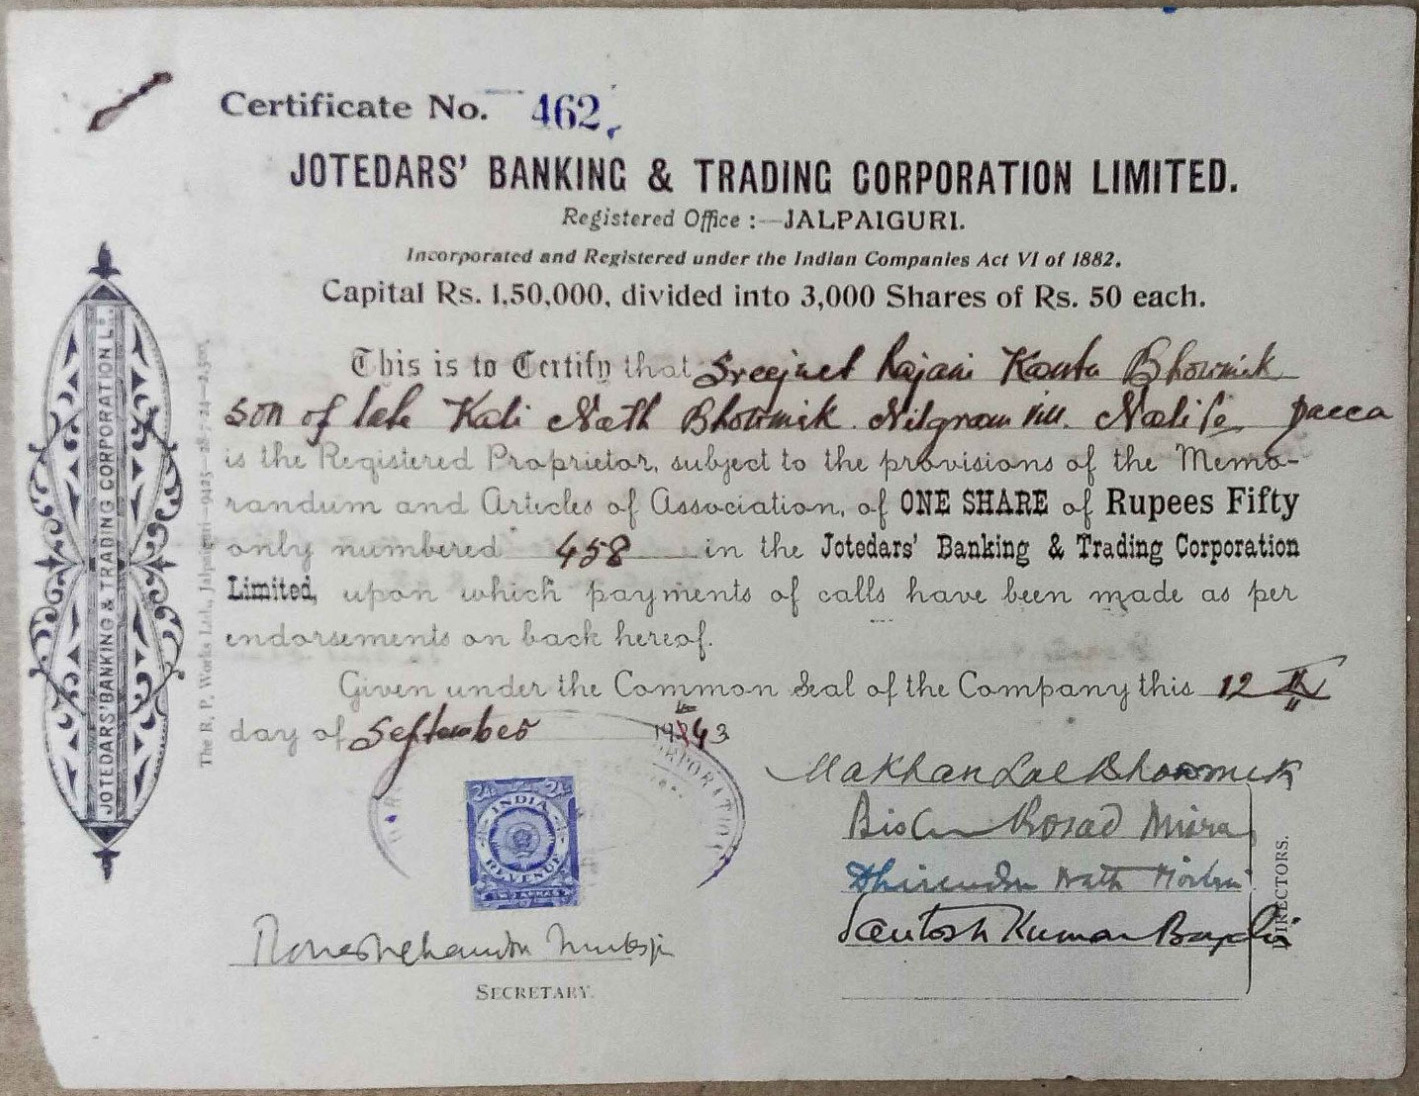 Certificate No. 462
JOTEDARS' BANKING & TRADING CORPORATION LIMITED.
Registered Office :—JALPAIGURI.
Incorporated and Registered under the Indian Companies Act VI of 1882.
Capital Rs. 1,50,000, divided into 3,000 Shares of Rs. 50 each.
This is to Certify that Sreejuet Rajani Kanta Bhowmik
son of late Kali Nath Bhowmik Dacca
is the Registered Proprietor, subject to the provisions of the Memo-
randum and Articles of Association, of ONE SHARE of Rupees Fifty
only numbered 458 in the Jotedars' Banking & Trading Corporation
Limited, upon which payments of calls have been made as per
endorsements on back hereof.
Given under the Common Seal of the Company this 12th
day of September 1943
JOTEDARS' BANKING & TRADING CORPORATION L
The R. P. Works Ltd., Jalpaiguri—
ORPORATION
INDIA
REVENUE
Makhan Lal Bhowmick
Misra
Nath
Santosh Kumar
DIRECTORS.
SECRETARY.